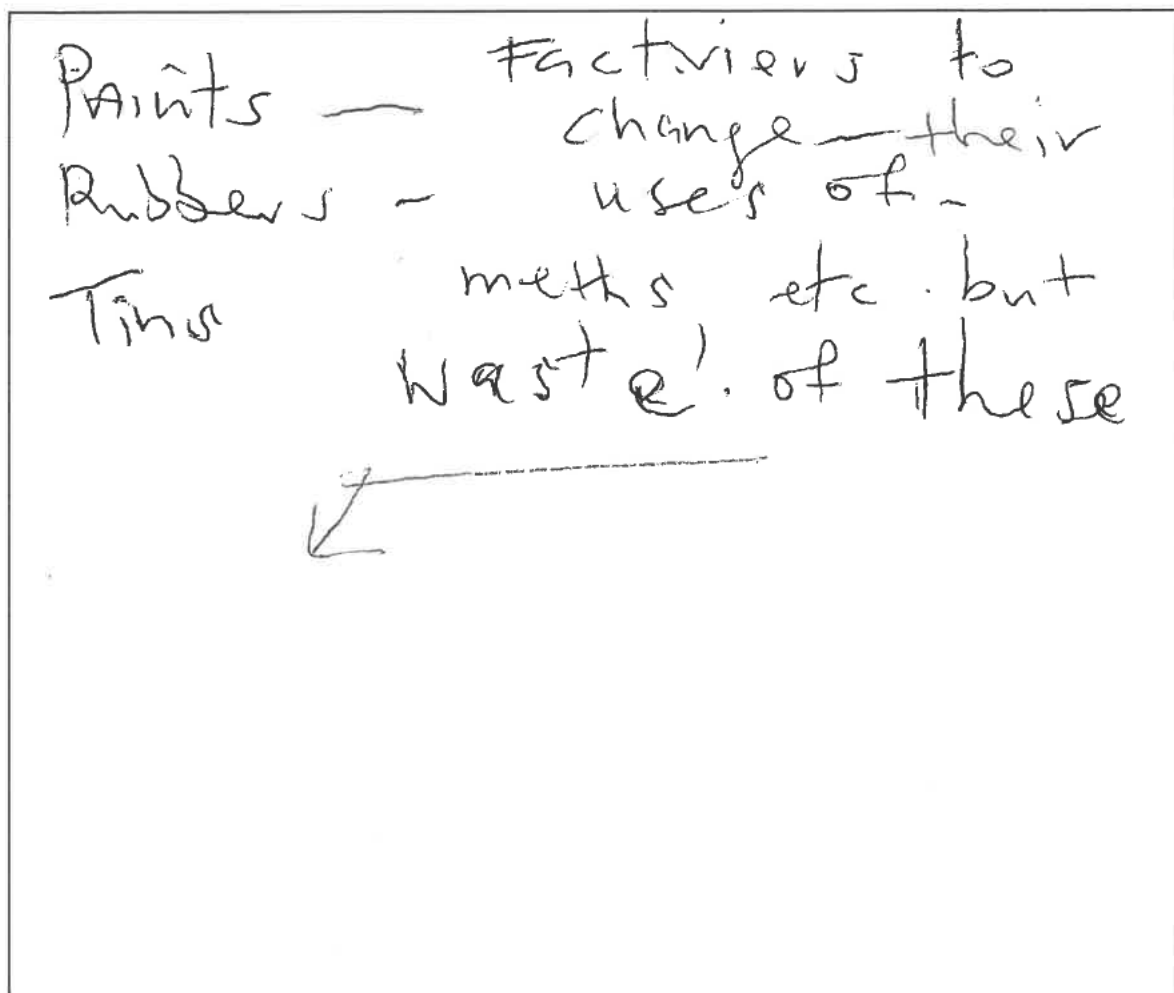 Paints — Factiviers to
change — their
Rubbers - uses of -
Tins meths etc. but
waste'. of these